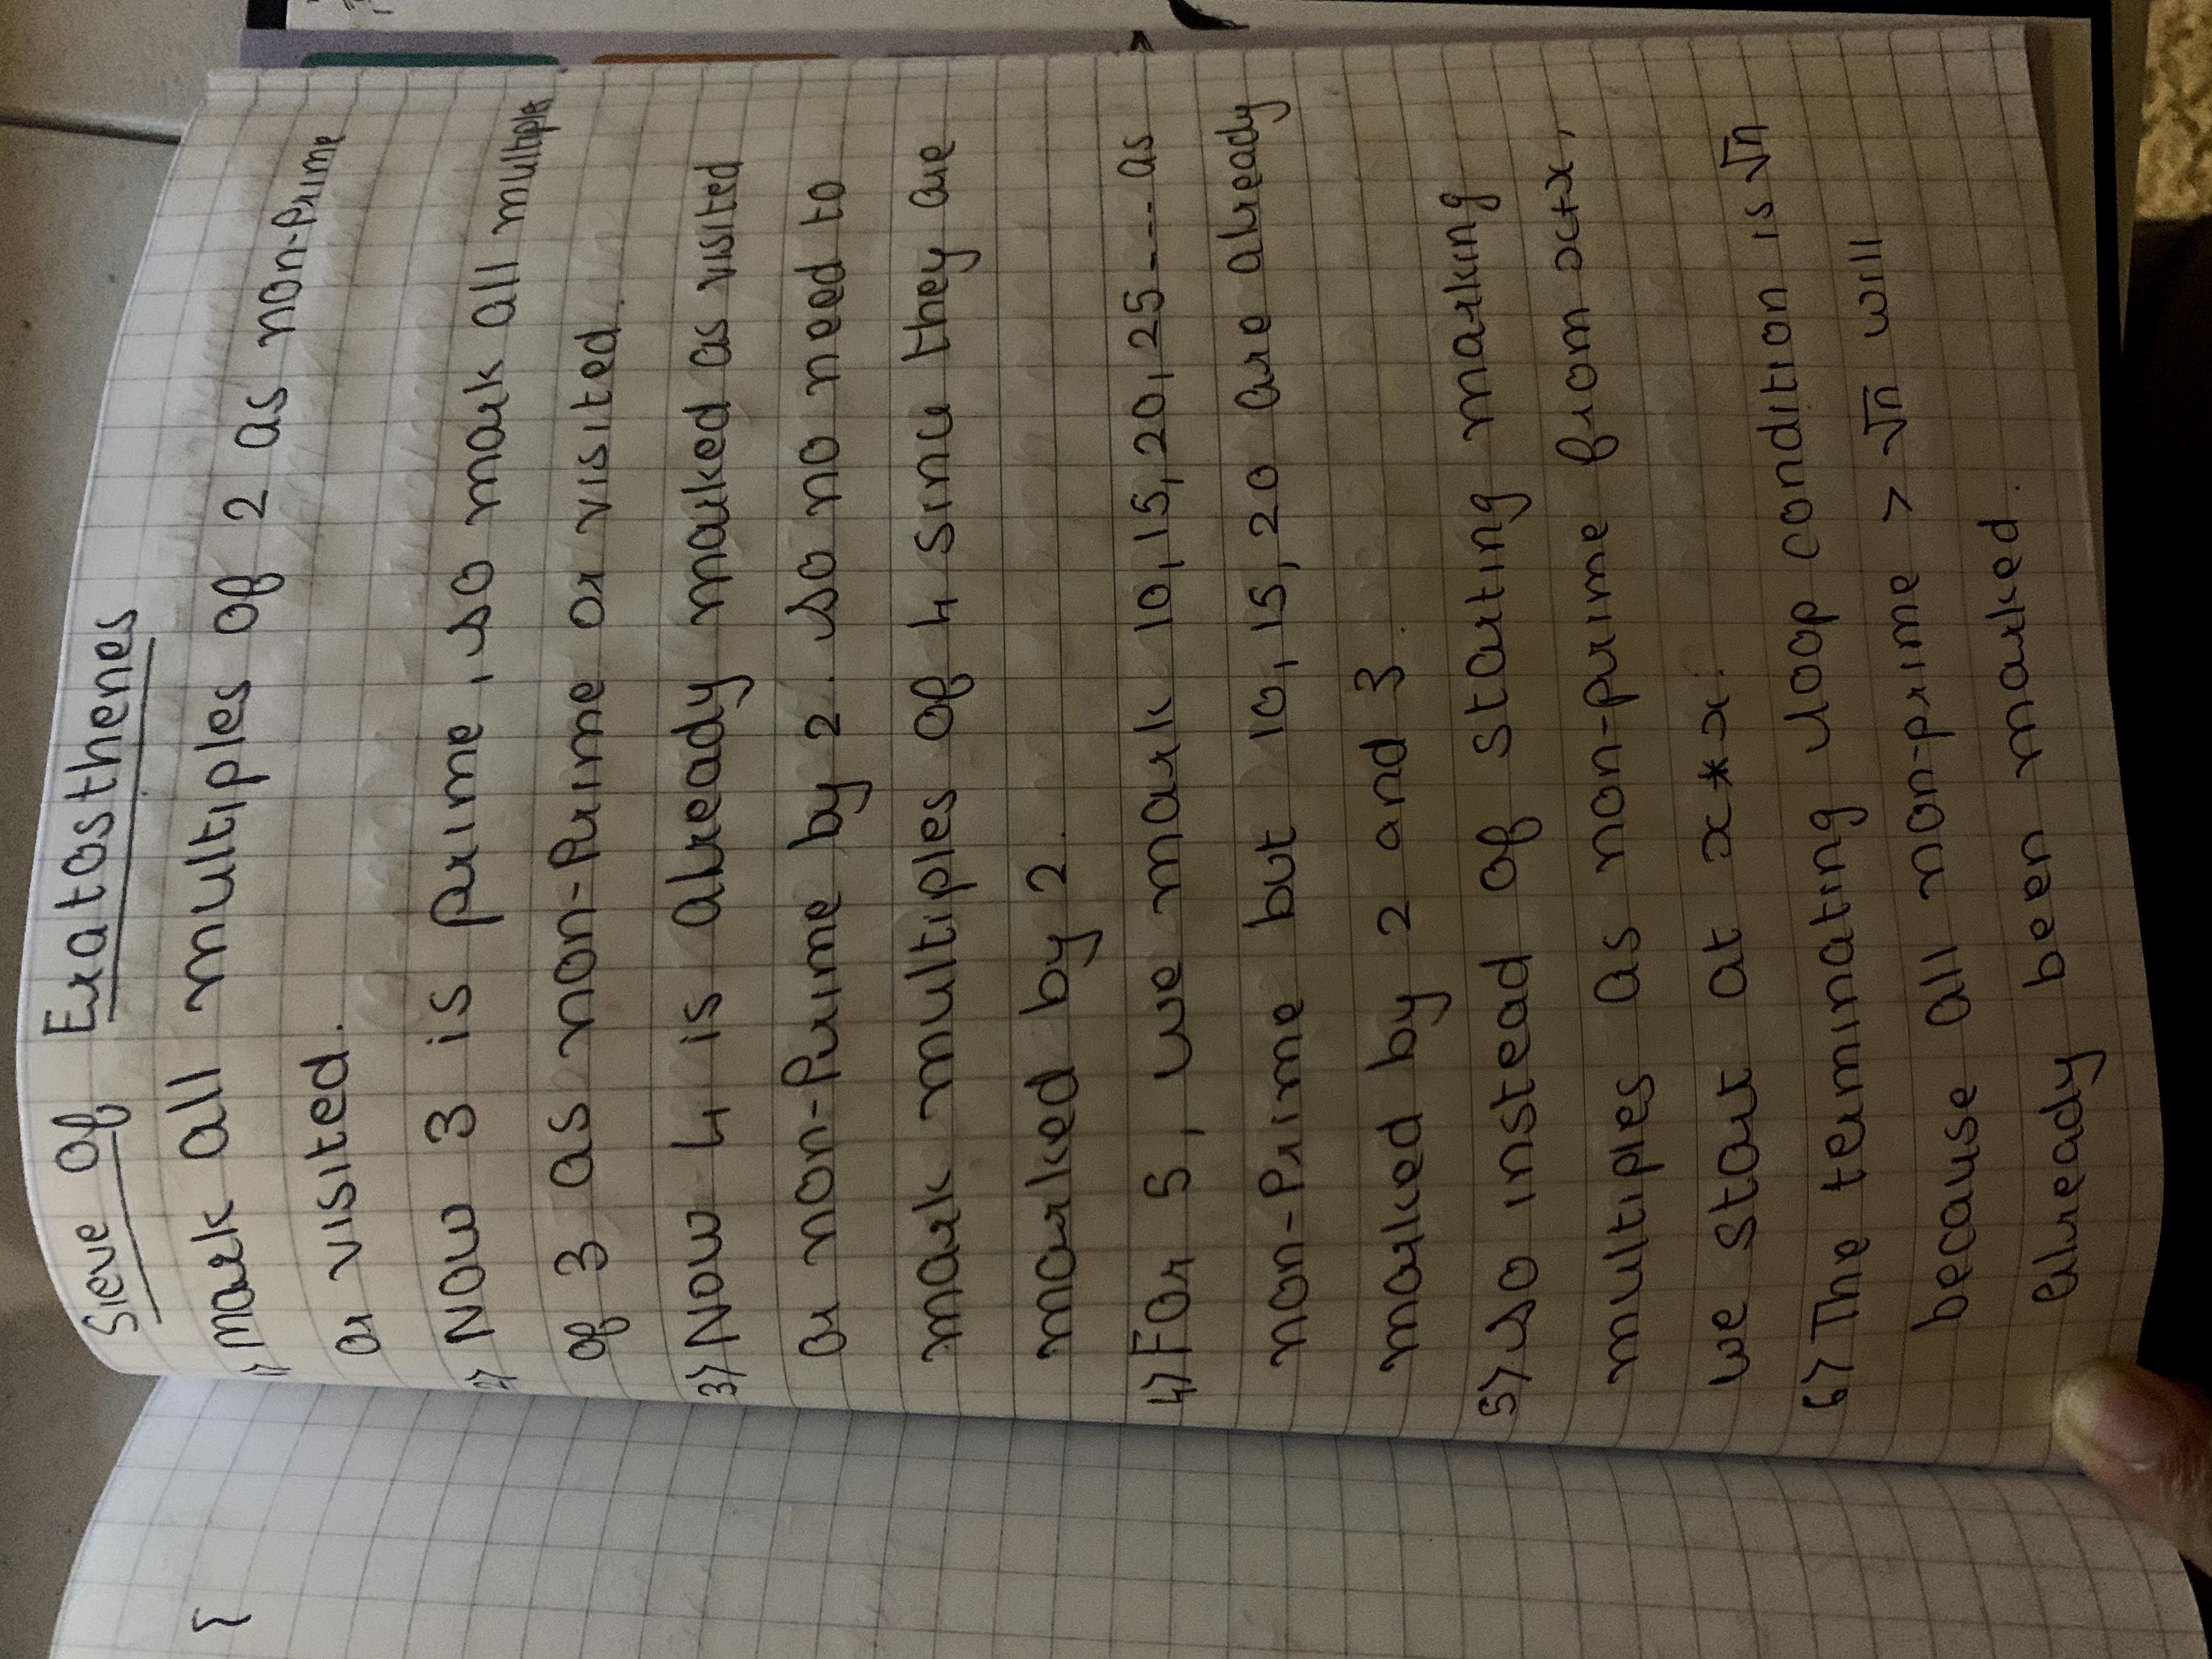 Sieve Of Eratosthenes
1) Mark all multiples of 2 as non-Prime
or visited.
2) Now 3 is prime, so mark all multiples
of 3 as non-Prime or visited.
3) Now 4 is already marked as visited
or non-Prime by 2. So no need to
mark multiples of 4 since they are
marked by 2.
4) For 5, we mark 10, 15, 20, 25---- as
non-Prime but 10, 15, 20 are already
marked by 2 and 3.
5) So instead of starting marking
multiples as non-prime from x+x,
we start at x*x.
6) The terminating loop condition is √n
because all non-prime > √n will
already been marked.